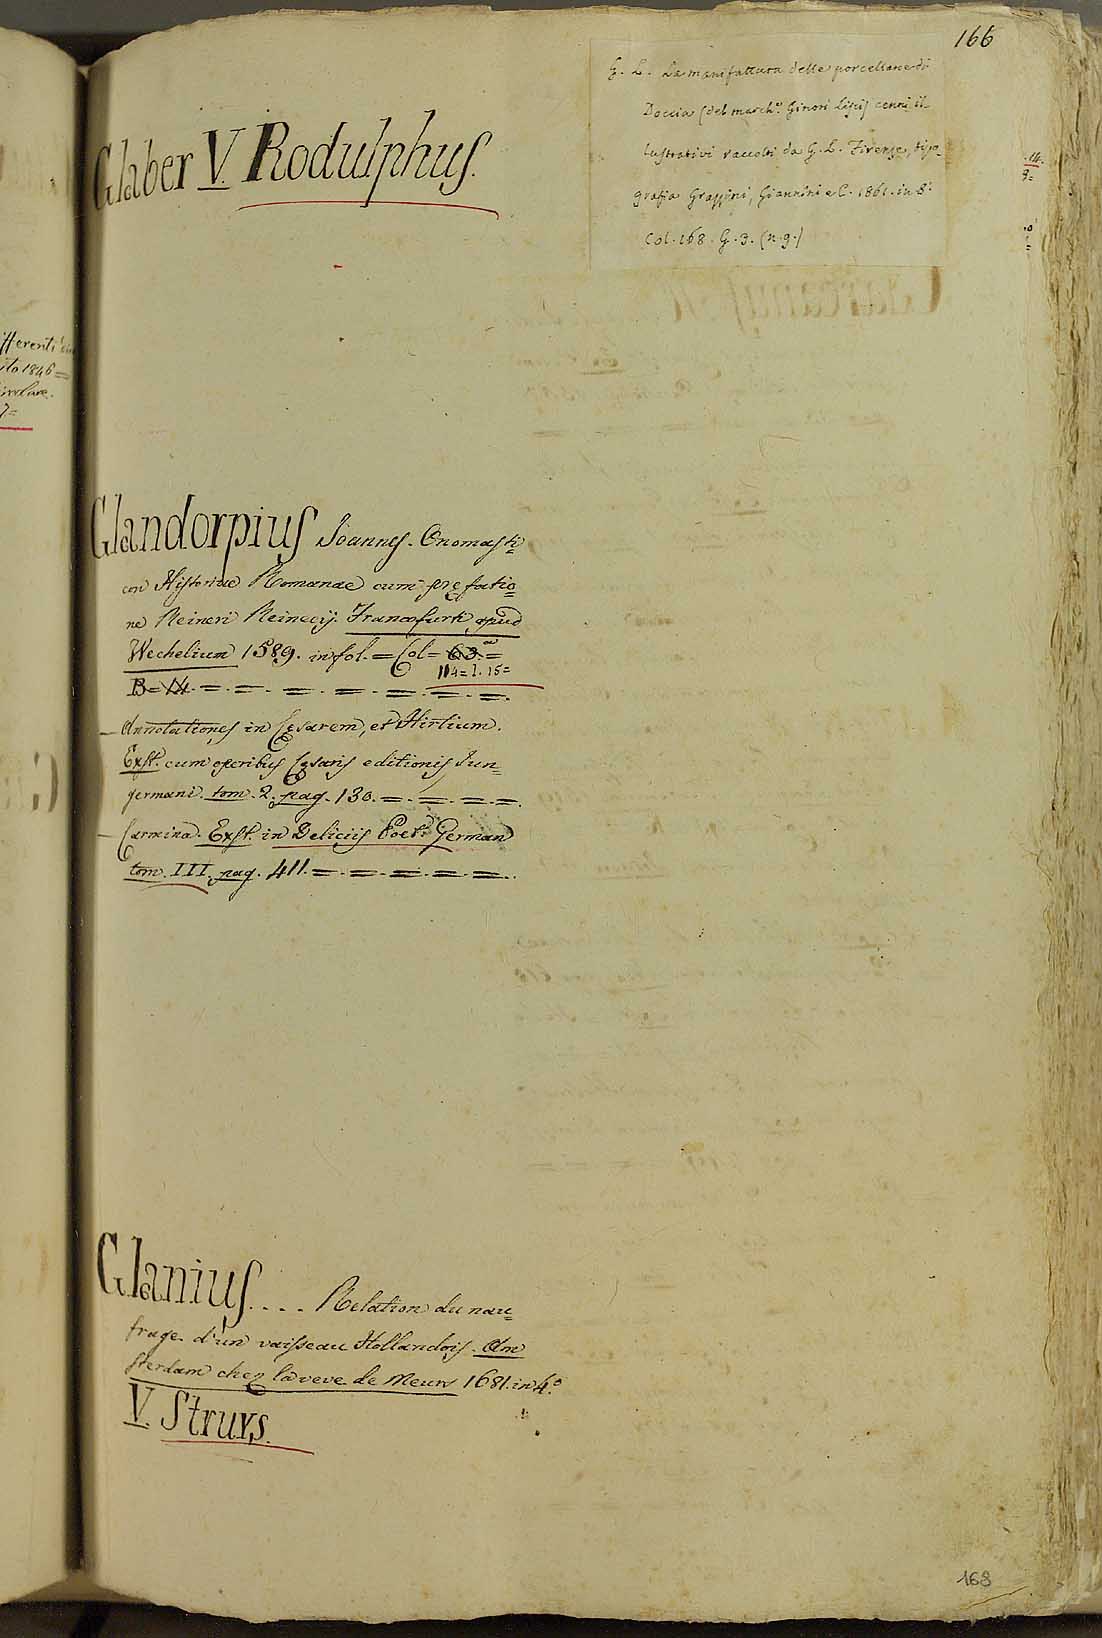 166
G. L. La manifattura delle porcellane di
Doccia (del march.e Ginori Lisci) cenni il-
lustrativi raccolti da G. L. Firenze, tipo-
grafia Grazzini, Giannini e C. 1861. in 8.°
Col. 168. G. 3. (n. 9.)
Glaber V. Rodulphus.
Glandorpius Joannes. Onomasti=
con Historiae Romanae cum prefatio=
ne Reineri Reineccij. Francofurti apud
Wechelium 1589. in fol. = Col = 63. =
114 = I. 15 =
B = 14 = = = = = = =
Annotationes in Cesarem, et Hirtium.
Exst. cum operibus Cesaris editionis Jun=
germani. tom. 2. pag. 130. = = = =
Carmina. Exst. in Deliciis Poet. German
tom. III. pag. 411. = = = = =
Glanius.... Relation du nau=
frage d'un vaisseau Hollandois. Am
sterdam chez la veve de Meurs 1681. in 4.°
V. Struys.
168
fferenti
ito 1846 =